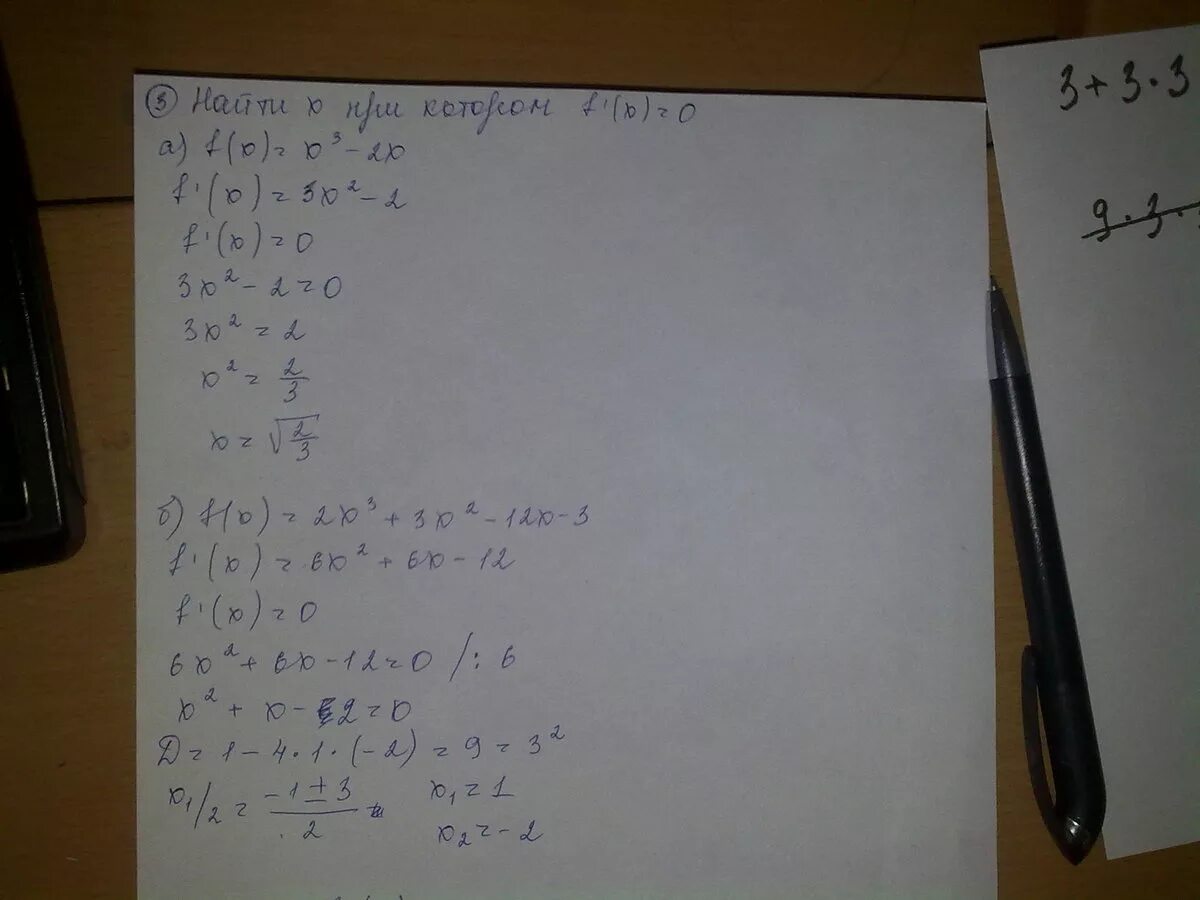 ③ Найти x при котором f'(x)=0
а) f(x)= x³-2x
f'(x)=3x²-2
f'(x)=0
3x²-2=0
3x²=2
x²=2/3
x=√(2/3)
б) f(x)=2x³+3x²-12x-3
f'(x)=6x²+6x-12
f'(x)=0
6x²+6x-12=0 /:6
x²+x-2=0
Д=1-4·1·(-2)=9=3²
x₁/₂=(-1±3)/2= x₁=1
x₂=-2
3+3·3
9·3·